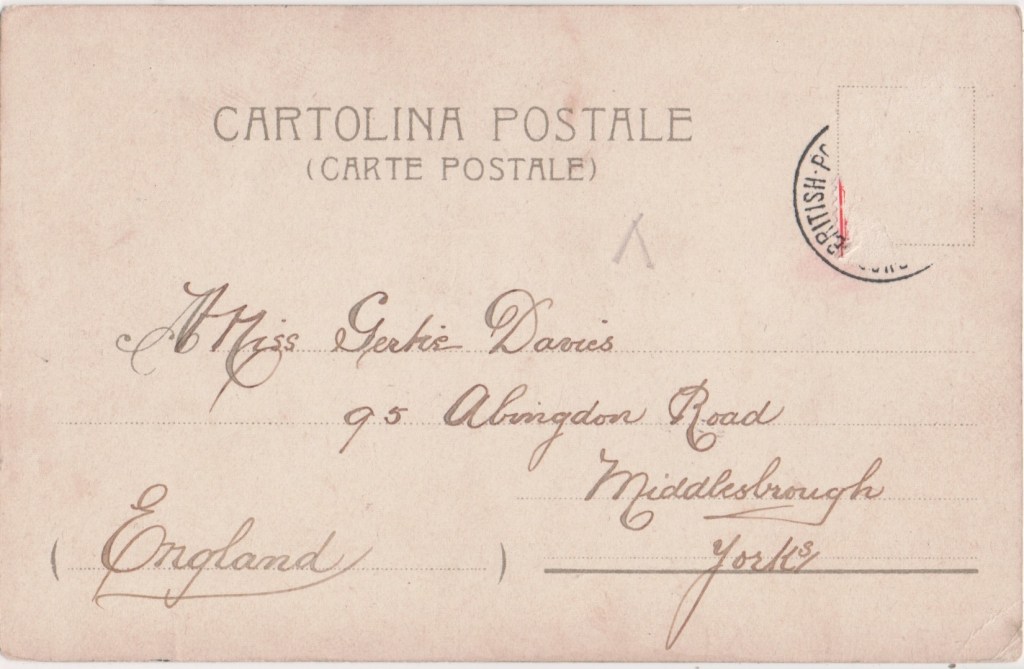 CARTOLINA POSTALE
(CARTE POSTALE)
BRITISH·PO
Miss Gertie Davies
95 Abingdon Road
Middlesbrough
Yorks
(England)